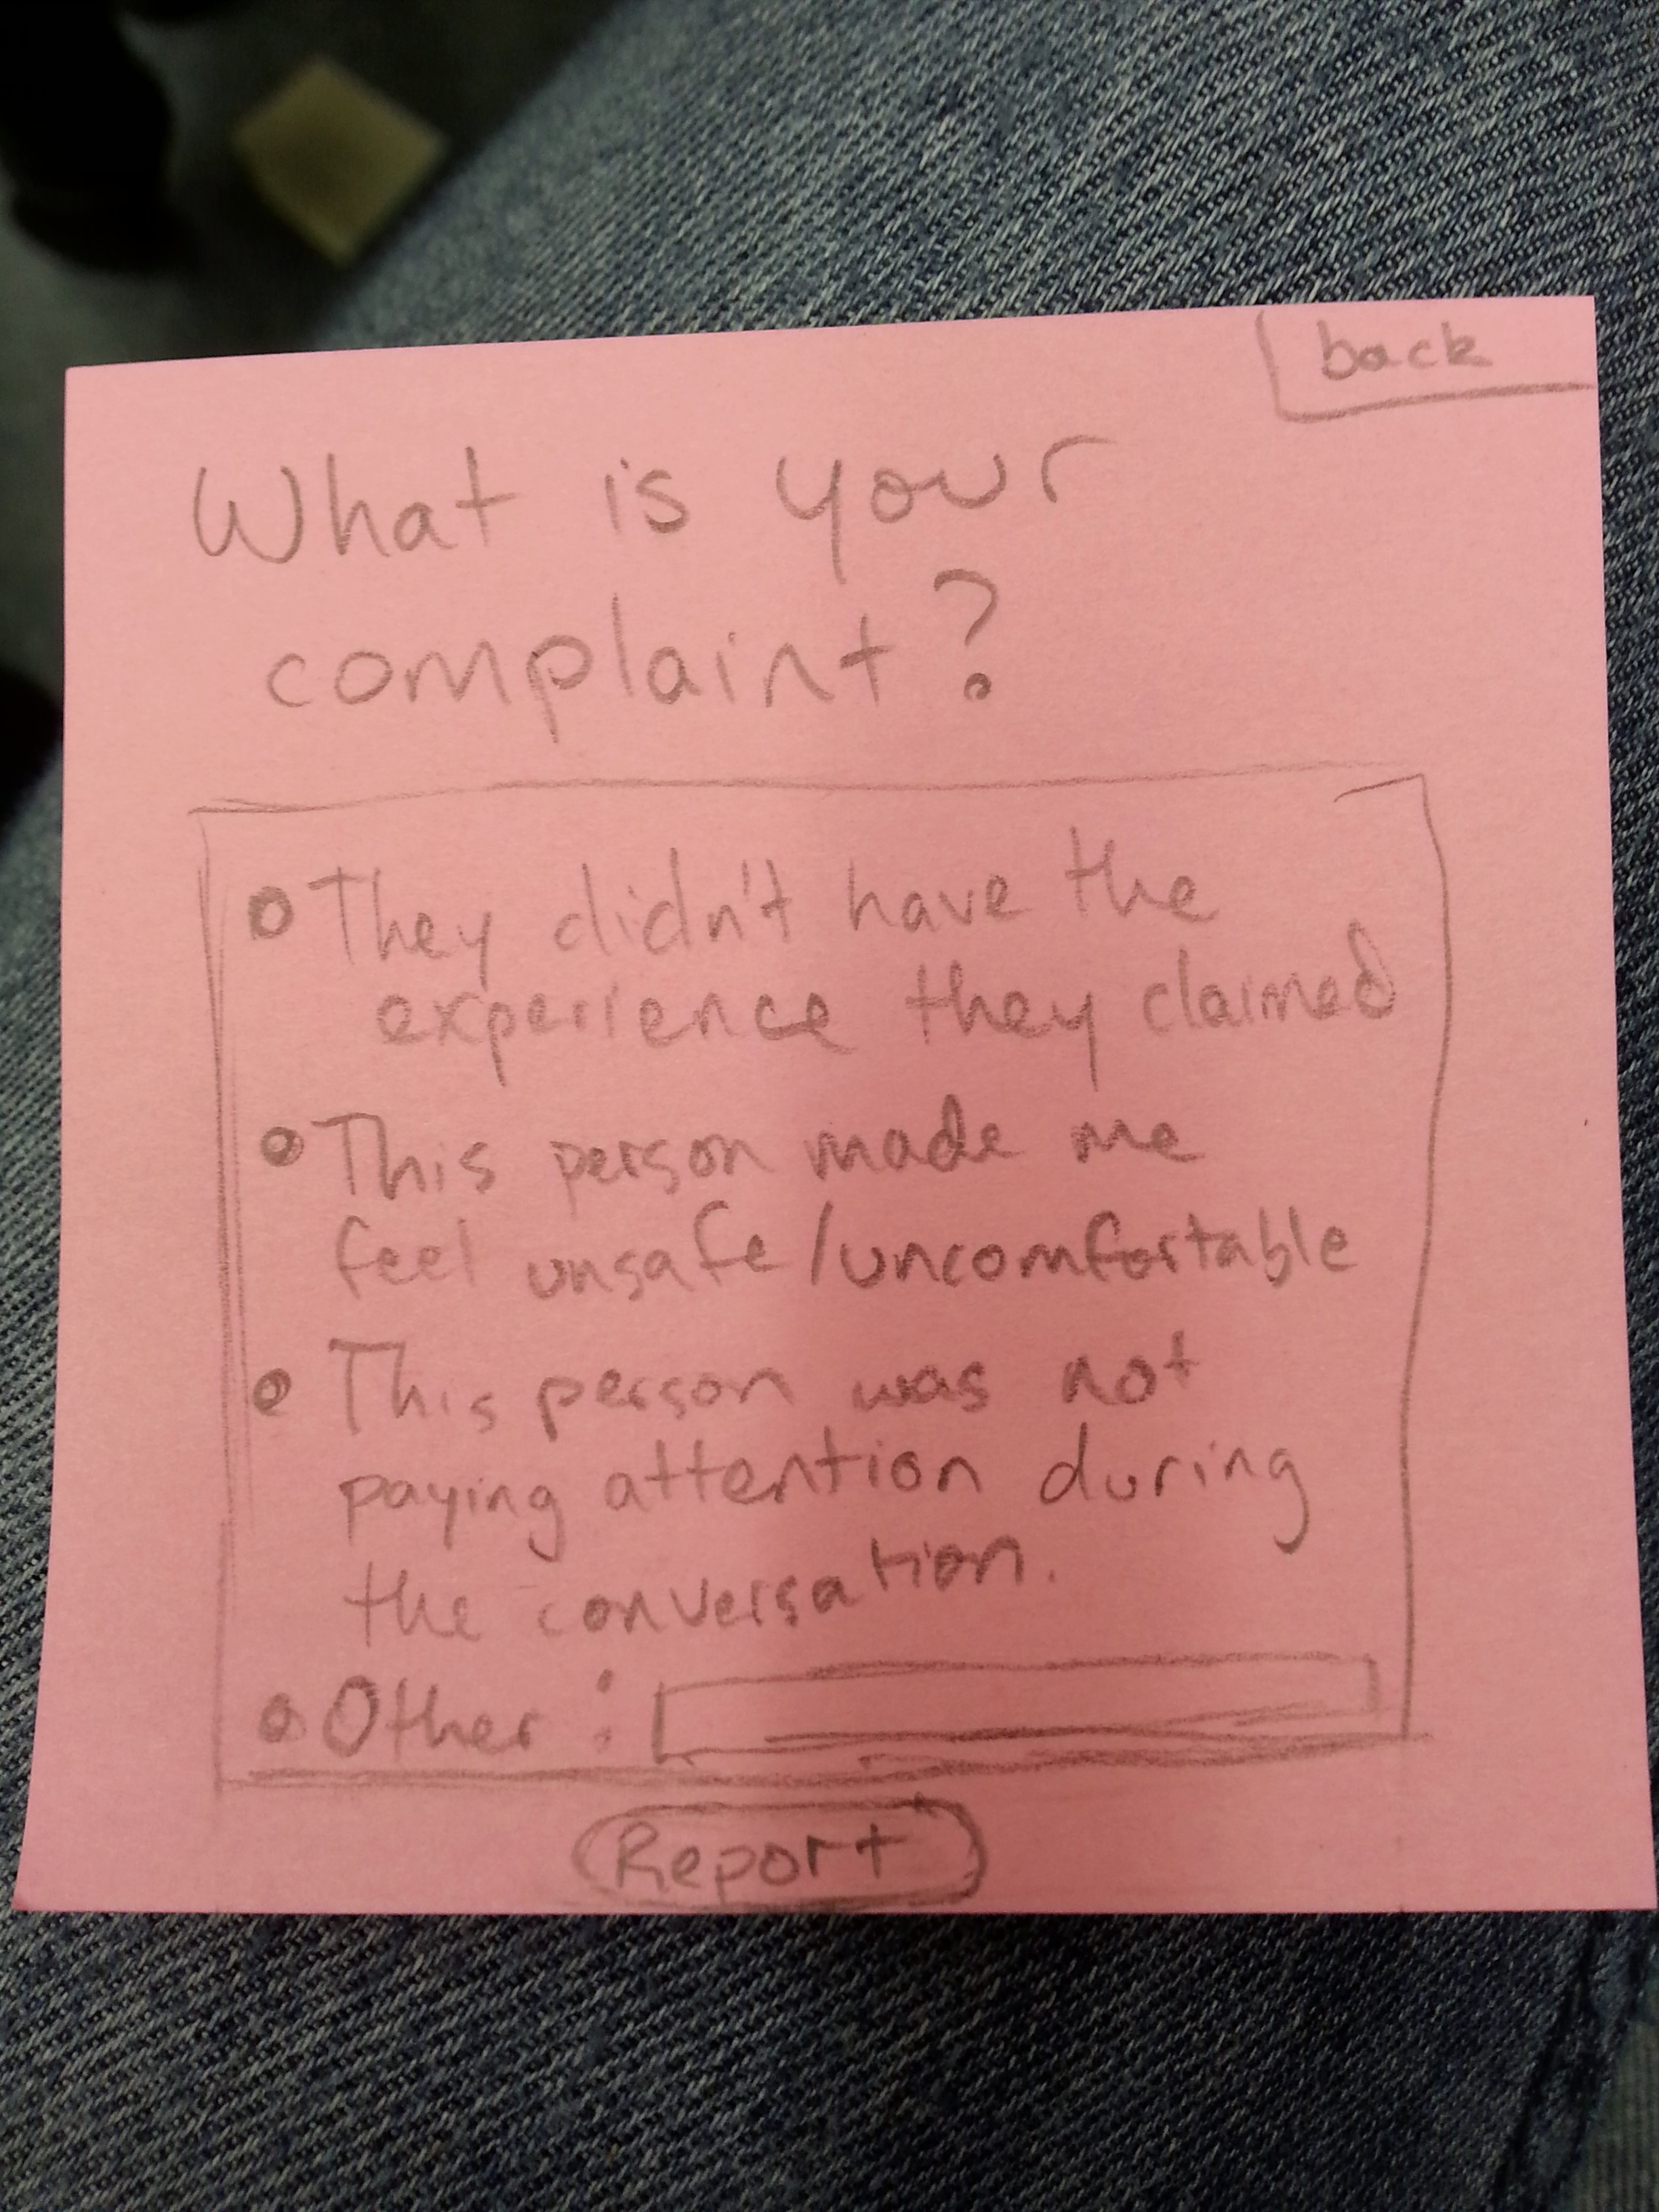 back
What is your
complaint?
They didn't have the
experience they claimed
This person made me
feel unsafe/uncomfortable
This person was not
paying attention during
the conversation.
Other:
Report